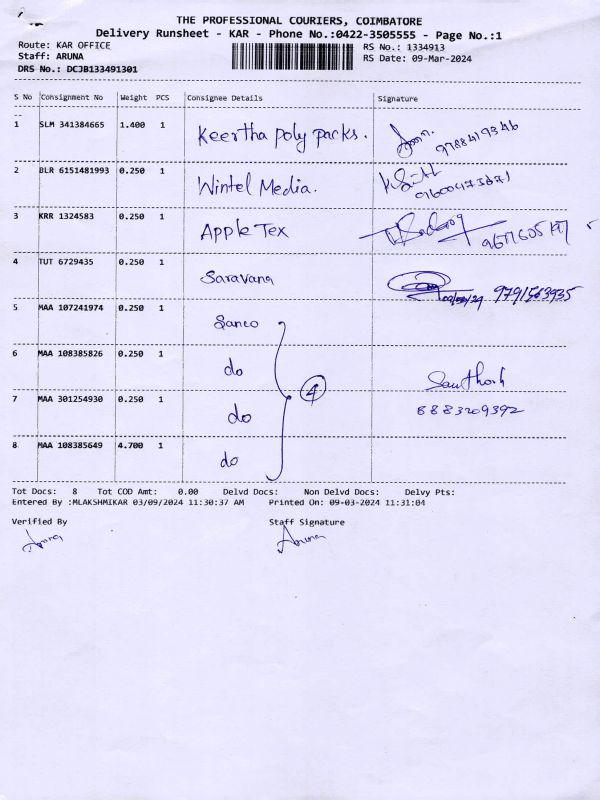 THE PROFESSIONAL COURIERS, COIMBATORE
Delivery Runsheet - KAR - Phone No.:0422-3505555 - Page No.:1
Route: KAR OFFICE RS No.: 1334913
Staff: ARUNA RS Date: 09-Mar-2024
DRS No.: DCJB133491301
S No Consignment No Weight PCS Consignee Details Signature
--
1 SLM 341384665 1.400 1 Keertha Poly packs. 9788419346
2 BLR 6151481993 0.250 1 Wintel Media.
3 KRR 1324583 0.250 1 Apple Tex
4 TUT 6729435 0.250 1 Saravana 9791563935
5 MAA 107241974 0.250 1 Sanco
6 MAA 108385826 0.250 1 do
4
7 MAA 301254930 0.250 1 do Santhosh
8883209392
8 MAA 108385649 4.700 1 do
Tot Docs: 8 Tot COD Amt: 0.00 Delvd Docs: Non Delvd Docs: Delvy Pts:
Entered By :MLAKSHMIKAR 03/09/2024 11:30:37 AM Printed On: 09-03-2024 11:31:04
Verified By Staff Signature
Aruna Aruna